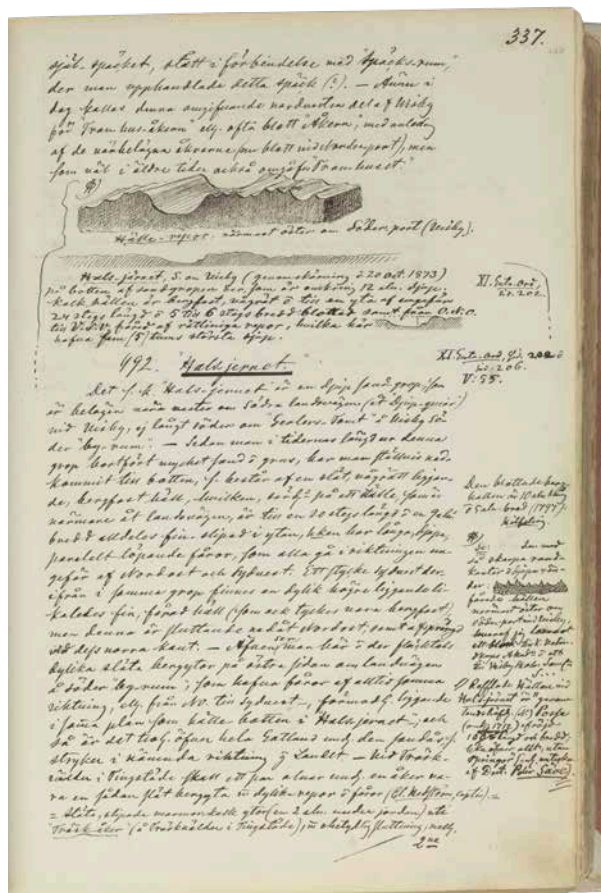 337.
själ-späcket, stått i förbindelse med "Späcks-rum,"
der man upphandlade detta späck (?). — Ännu i
dag kallas denna omgifvande nordvestra del af Wisby
för "Tranhus-åkern" ell. ofta blott "Åkern," med anledn
af de närbelägna åkrarne (nu blott vid Norderport), men
som väl i äldre tider också omgåfvo Tranhuset."
Hälle-repor, närmast öster om Söder-port (Wisby).
Hals-jernet, S. om Wisby (genomskärning i 20 Oct. 1873)
på botten af sandgropen der, som är omkring 12 aln. djup.
Kalkhällen är bergfast, vågrät o till en yta af ungefär
24 stegs längd o 5 till 6 stegs bredd blottad samt från O.t.O.
till V.d.V. fårad af rätliniga repor, hvilka här
hafva fem (5) tums största djup.
XI. Gute-Ord,
sid. 202.
492. "Halsjernet."
XI. Gute-Ord, Sid. 202 o
sid. 206.
V: 55.
Det s.k. "Hals-jernet" är en djup sandgrop, som
är belägen nära vester om Södra landsvägen
vid Visby, ej långt söder om "Gerlers-Tomt" å Wisby Sö
der "by-rum". — Sedan man i tidernas längd ur denna
grop bortfört mycket sand o grus, har man slutligen ned-
kommit till botten, s. består af en slät, vågrätt liggan-
de, bergfast häll, hvilken, på ett ställe, som är
närmare åt landsvägen, är till en 20 stegs längd o en
bredd alldeles fin-slipad i ytan, hken har långa, djupa,
paralelt löpande fåror, som alla gå i riktningen un-
gefär af Nordost och Sydvest. Ett stycke sydvest der-
ifrån i samma grop finnes en dylik högre liggande li-
kaledes fin, fårad häll (som ock tyckes vara bergfast)
men denna är sluttande nedåt Nordost, samt afsprängd
vid dess norra kant. — Äfven ser man här o der fläcktals
dylika släta bergytor på östra sidan om landsvägen
å söder "by-rum", som hafva fåror af alltid samma
riktning, ell. från NO. till Sydvest, förmodl. liggande
i samma plan som hälle botten i Halsjernet —, och
så är det trol. öfver hela Gotland und. den sandör, s.
stryker i nämnda riktning på Landet — Vid Träsk-
välder i Tingstäde skall ett par alnar und. en åker va-
ra en sådan slät bergyta m dylika repor o fåror
= Släta, slipade marmorkalk ytor (en 2 aln. under jorden) uti
Träsk åker (å Träskvälder i Tingstäde), m obetydlig sluttning, mell.
Den blottade berg-
hällen är 10 aln lång
o 5 aln. bred (1877).
se: den med
så skarpa rand-
kanter o djupa rän-
der:
fårade hällen
närmast öster om
söder-port vid Wisby,
hvaraf jag lemnat
ett till
Akad. o ett
till Wisby
Rafflade Hällen vid
Halsjernet är genom
landshöfd.
(1877)
Doct. Pehr Säve).